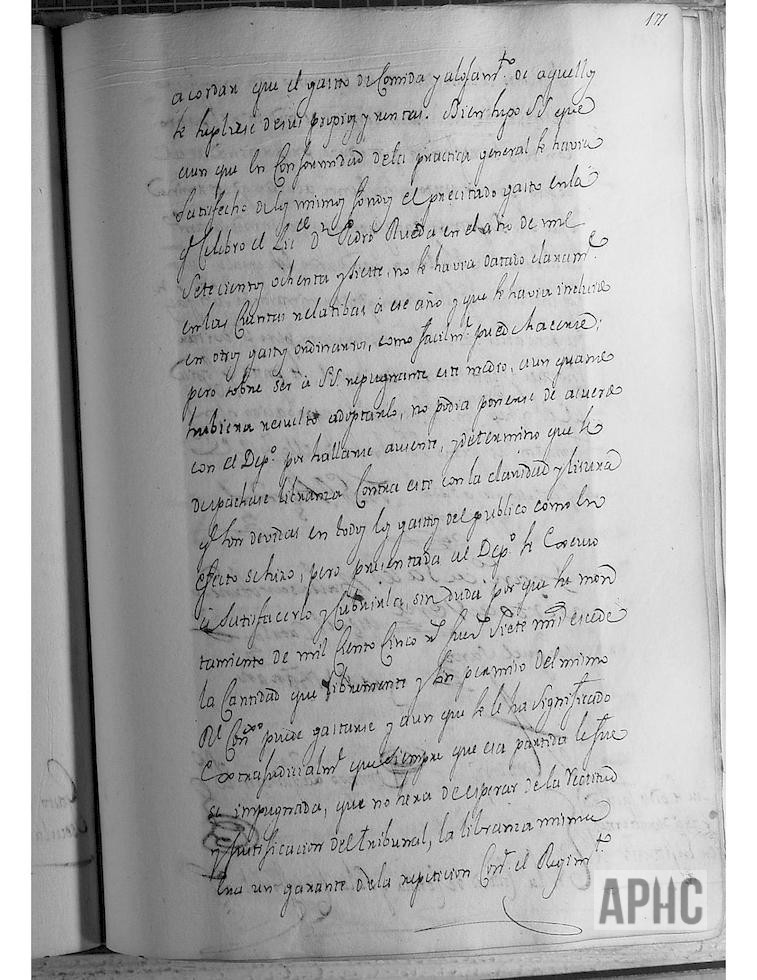 171
acordar que el gasto de Comida y alojam.to de aquellos
se supliese de sus propios y rentas. Bien hizo SS que
aun que en Conformidad de la practica general se havia
satisfecho de los mismos fondos el precitado gasto en la
q.e Celebro el Lic.do D.n Pedro Rueda en el año de mil
setecientos ochenta y siete, no se havia datado claram.te
en las Cuentas relatibas a ese año y que se havia incluido
en otros gastos ordinarios, como facilm.te puede hacerse;
pero sobre ser a SS repugnante este medio, aun quando
hubiera resuelto adoptarlo, no podia ponerse de acuerdo
con el Dep.o por hallarse ausente, y determino que se
despachase libranza Contra este con la claridad y lisura
q.e son devidas en todos los gastos del publico como en
efecto se hizo, pero presentada al Dep.o se
a satisfacerlo y Cubrirla, sin duda por que su mon
tamiento de mil Ciento Cinco r.s siete m.s escede
la Cantidad que libremente y sin permiso del mismo
R.l Con.xo puede gastarse y aun que se le ha significado
Extrajudicialm.te que siempre que esa partida le fue
se impugnada, que no hera de esperar de la rectitud
y Justificacion del tribunal, la libranza misma
era un garante de la repeticion Con.t el Regim.to
APHC